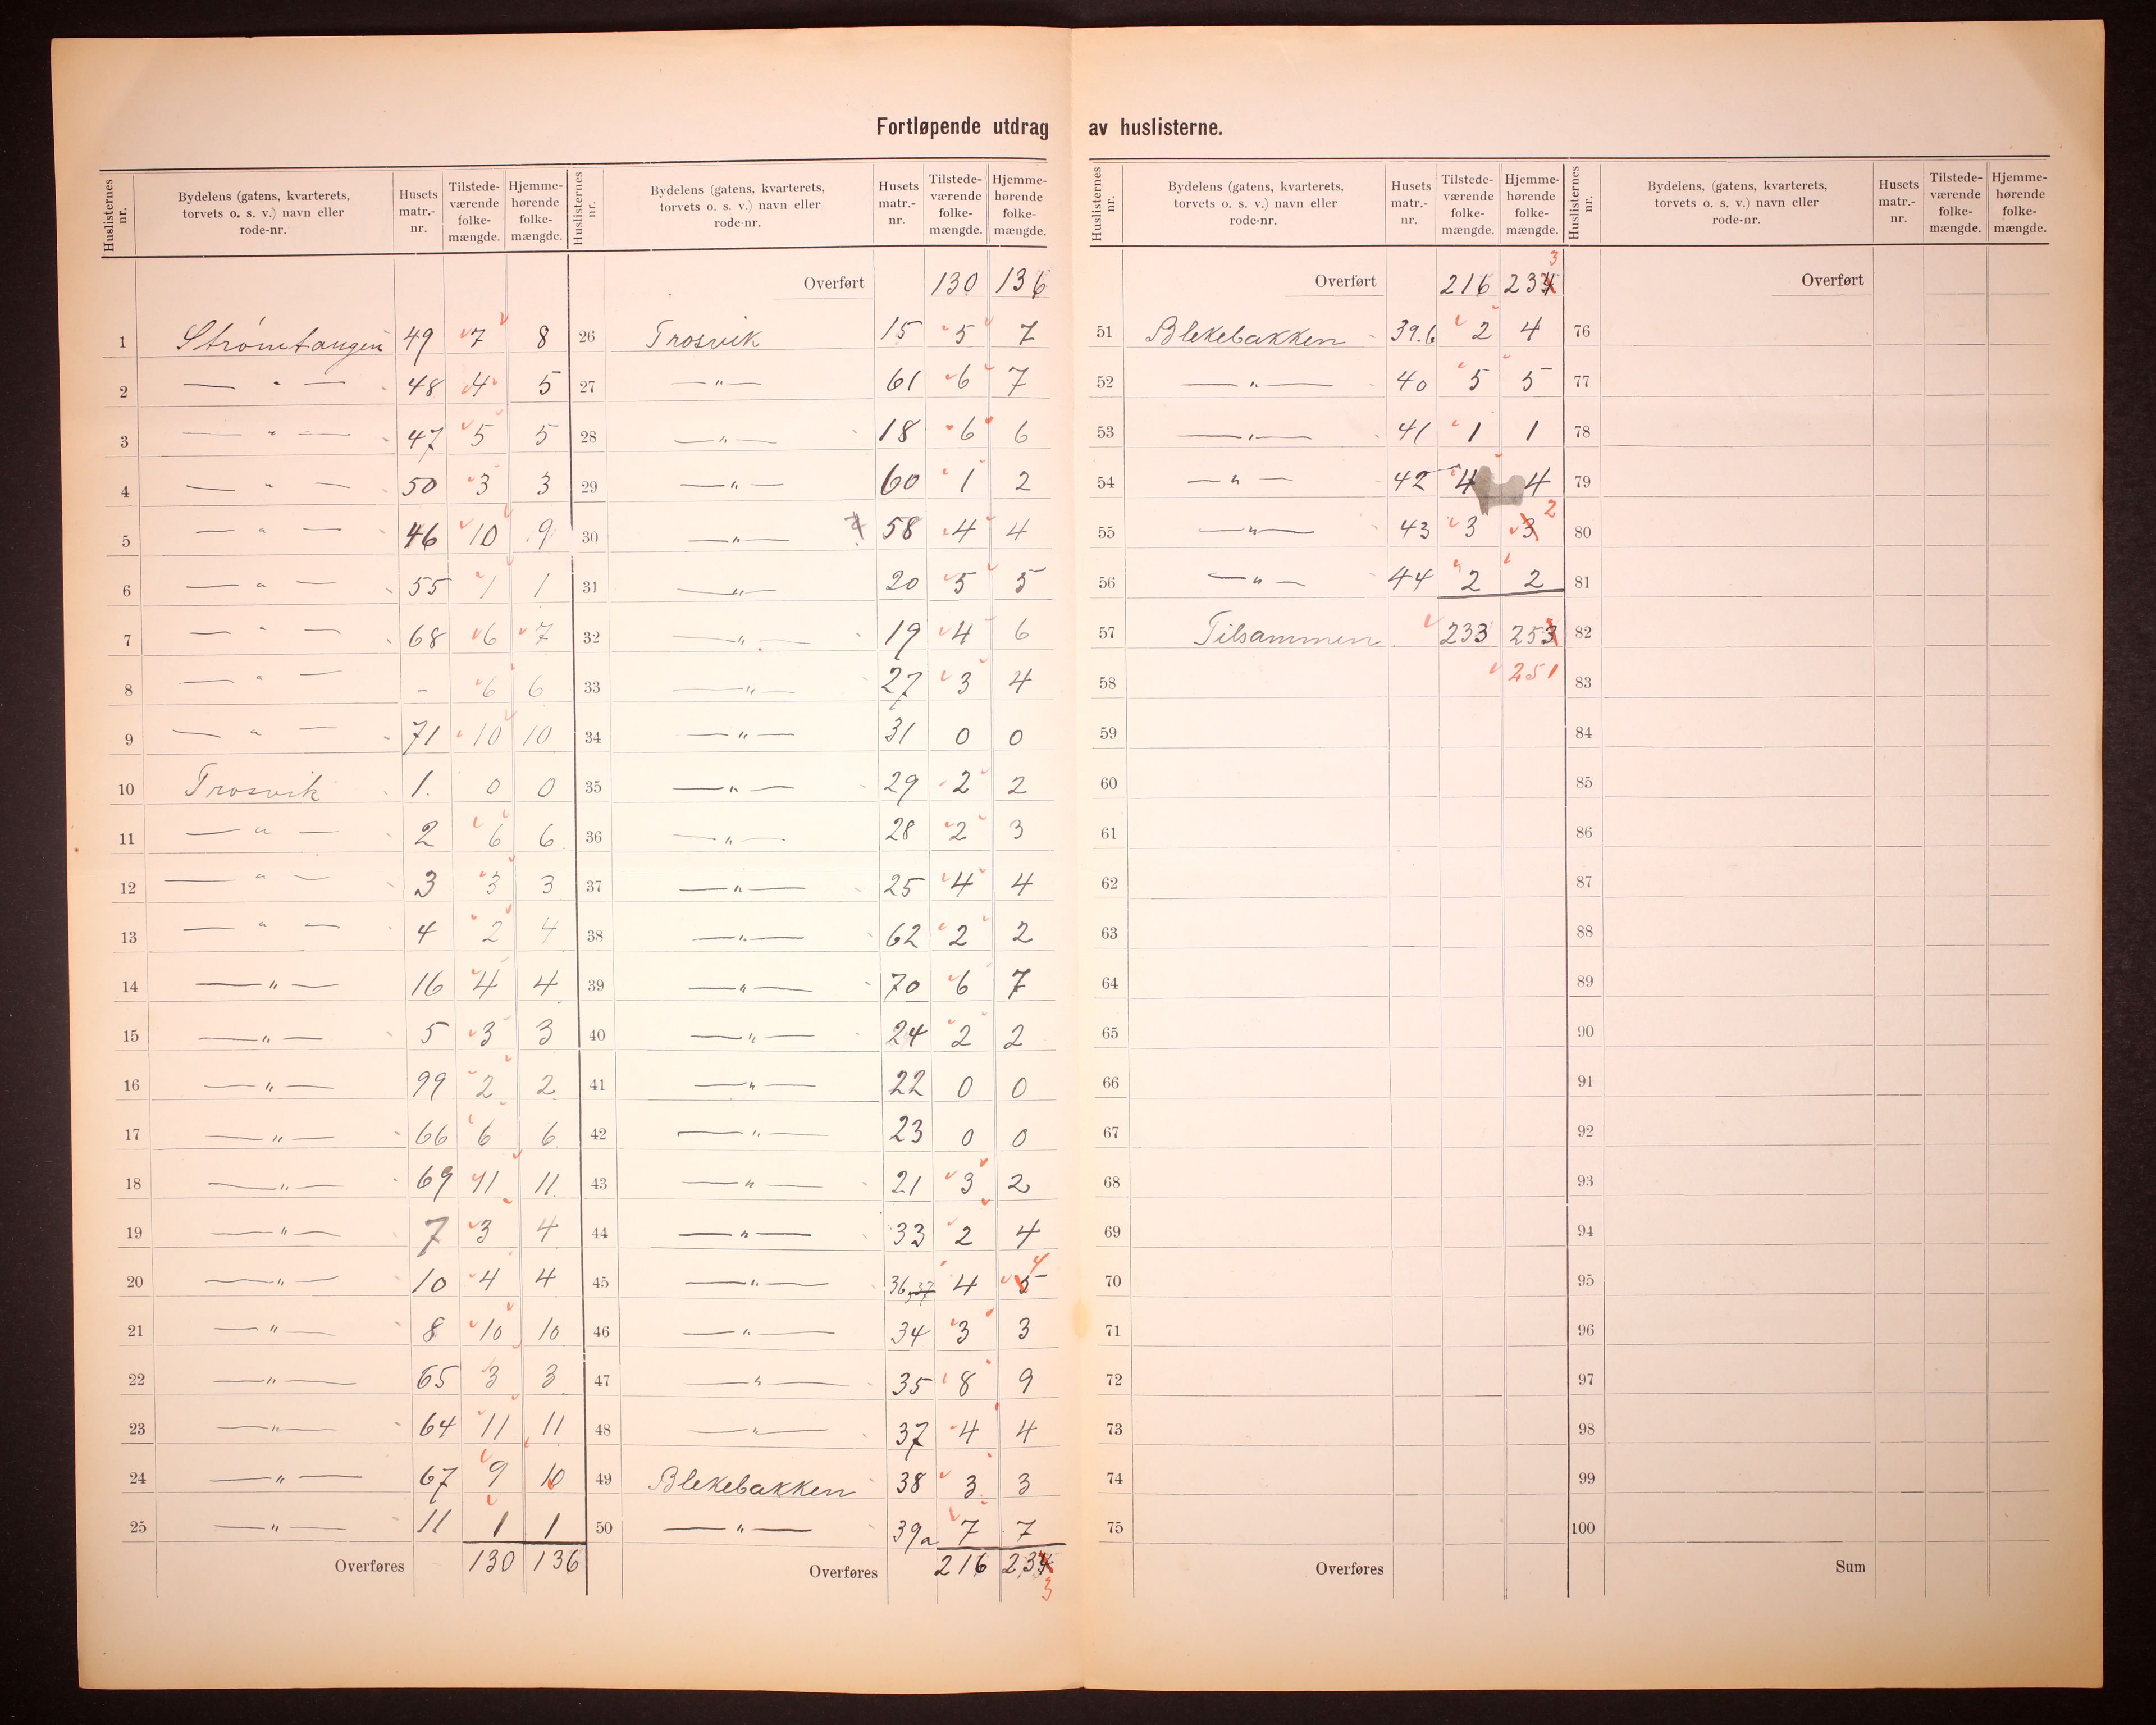 Fortløpende utdrag av huslisterne.
Huslisternes nr. | Bydelens (gatens, kvarterets, torvets o. s. v.) navn eller rode-nr. | Husets matr.-nr. | Tilstede-værende folke-mængde. | Hjemme-hørende folke-mængde.
1 Strømtangen 49 7 8
2 — " — 48 4 5
3 — " — 47 5 5
4 — " — 50 3 3
5 — " — 46 10 9
6 — " — 55 1 1
7 — " — 68 6 7
8 — " — - 6 6
9 — " — 71 10 10
10 Trosvik 1. 0 0
11 — " — 2 6 6
12 — " — 3 3 3
13 — " — 4 2 4
14 — " — 16 4 4
15 — " — 5 3 3
16 — " — 99 2 2
17 — " — 66 6 6
18 — " — 69 11 11
19 — " — 7 3 4
20 — " — 10 4 4
21 — " — 8 10 10
22 — " — 65 3 3
23 — " — 64 11 11
24 — " — 67 9 10
25 — " — 11 1 1
Overføres 130 136
Huslisternes nr. | Bydelens (gatens, kvarterets, torvets o. s. v.) navn eller rode-nr. | Husets matr.-nr. | Tilstede-værende folke-mængde. | Hjemme-hørende folke-mængde.
Overført 130 136
26 Trosvik 15 5 7
27 — " — 61 6 7
28 — " — 18 6 6
29 — " — 60 1 2
30 — " — 58 4 4
31 — " — 20 5 5
32 — " — 19 4 6
33 — " — 27 3 4
34 — " — 31 0 0
35 — " — 29 2 2
36 — " — 28 2 3
37 — " — 25 4 4
38 — " — 62 2 2
39 — " — 70 6 7
40 — " — 24 2 2
41 — " — 22 0 0
42 — " — 23 0 0
43 — " — 21 3 2
44 — " — 33 2 4
45 — " — 36,37 4 5 4
46 — " — 34 3 3
47 — " — 35 8 9
48 — " — 37 4 4
49 Blekebakken 38 3 3
50 — " — 39a 7 7
Overføres 216 234
3
Huslisternes nr. | Bydelens (gatens, kvarterets, torvets o. s. v.) navn eller rode-nr. | Husets matr.-nr. | Tilstede-værende folke-mængde. | Hjemme-hørende folke-mængde.
3
Overført 216 234
51 Blekebakken 39.b 2 4
52 — " — 40 5 5
53 — " — 41 1 1
54 — " — 42 4 4
55 — " — 43 3 3 2
56 — " — 44 2 2
57 Tilsammen 233 253
58 251
59
60
61
62
63
64
65
66
67
68
69
70
71
72
73
74
75
Overføres
Huslisternes nr. | Bydelens, (gatens, kvarterets, torvets o. s. v.) navn eller rode-nr. | Husets matr.-nr. | Tilstede-værende folke-mængde. | Hjemme-hørende folke-mængde.
Overført
76
77
78
79
80
81
82
83
84
85
86
87
88
89
90
91
92
93
94
95
96
97
98
99
100
Sum